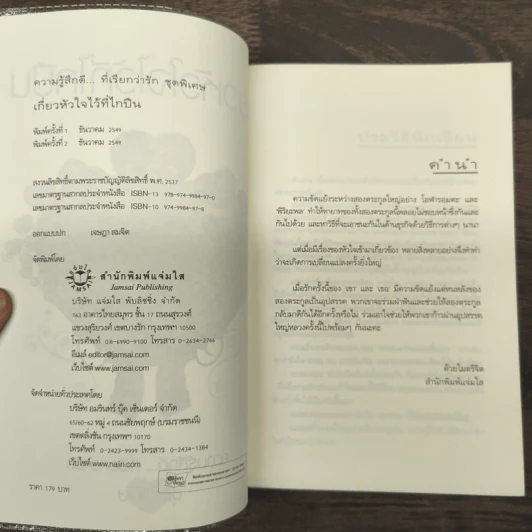 ความรู้สึกดี... ที่เรียกว่ารัก ชุดพิเศษ
เกี่ยวหัวใจไว้ที่ไกปืน
พิมพ์ครั้งที่ 1 ธันวาคม 2549
พิมพ์ครั้งที่ 2 ธันวาคม 2549
สงวนลิขสิทธิ์ตามพระราชบัญญัติลิขสิทธิ์ พ.ศ. 2537
เลขมาตรฐานสากลประจำหนังสือ ISBN-13 978-974-9984-97-0
เลขมาตรฐานสากลประจำหนังสือ ISBN-10 974-9984-97-8
ออกแบบปก เจษฎา สมจิต
จัดพิมพ์โดย
สำนักพิมพ์แจ่มใส
Jamsai Publishing
บริษัท แจ่มใส พับลิชชิ่ง จำกัด
163 อาคารไทยสมุทร ชั้น 17 ถนนสุรวงศ์
แขวงสุริยวงศ์ เขตบางรัก กรุงเทพฯ 10500
โทรศัพท์ 08-6990-9100 โทรสาร 0-2634-2766
อีเมล์ editor@jamsai.com
เว็บไซต์ www.jamsai.com
จัดจำหน่ายทั่วประเทศโดย
บริษัท อมรินทร์ บุ๊ค เซ็นเตอร์ จำกัด
65/60-62 หมู่ 4 ถนนชัยพฤกษ์ (บรมราชชนนี)
เขตตลิ่งชัน กรุงเทพฯ 10170
โทรศัพท์ 0-2423-9999 โทรสาร 0-2434-1384
เว็บไซต์ www.naiin.com
ราคา 179 บาท
คำนำ
ความขัดแย้งระหว่างสองตระกูลใหญ่อย่าง โอฬารอมตะ และ
พิริยะพล ทำให้ทายาทของทั้งสองตระกูลนี้พลอยไม่ชอบหน้าซึ่งกันและ
กันไปด้วย และหาวิธีที่จะเอาชนะกันในด้านธุรกิจด้วยวิธีการต่างๆ นานา
แต่เมื่อมีเรื่องของหัวใจเข้ามาเกี่ยวข้อง หลายสิ่งหลายอย่างจึงทำท่า
ว่าจะเกิดการเปลี่ยนแปลงครั้งยิ่งใหญ่
เมื่อรักครั้งนี้ของ เขา และ เธอ มีความขัดแย้งแต่หนหลังของ
สองตระกูลเป็นอุปสรรค พวกเขาจะร่วมฝ่าฟันและช่วยให้สองตระกูล
กลับมาดีกันได้อีกครั้งหรือไม่ ร่วมเอาใจช่วยให้พวกเขาก้าวผ่านอุปสรรค
ใหญ่หลวงครั้งนี้ไปพร้อมๆ กันนะคะ
ด้วยไมตรีจิต
สำนักพิมพ์แจ่มใส